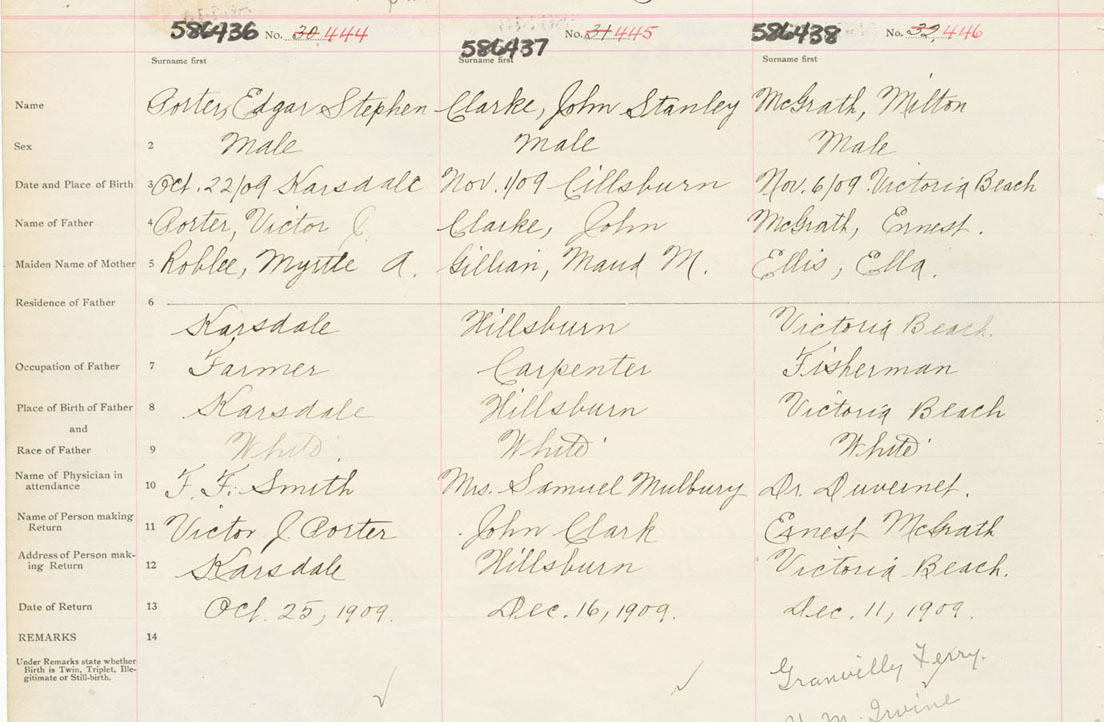 586436 No. 30 444 586437 No. 31 445 586438 No. 32, 446
Surname first Surname first Surname first
Name Porter, Edgar Stephen Clarke, John Stanley McGrath, Milton
Sex 2 Male Male Male
Date and Place of Birth 3 Oct. 22/09 Karsdale Nov. 1/09 Cillsburn Nov. 6/09 Victoria Beach
Name of Father 4 Porter, Victor J. Clarke, John McGrath, Ernest.
Maiden Name of Mother 5 Roblee, Myrtle A. Gillian, Maud M. Ellis, Ella.
Residence of Father 6
Karsdale Hillsburn Victoria Beach.
Occupation of Father 7 Farmer Carpenter Fisherman
Place of Birth of Father 8 Karsdale Hillsburn Victoria Beach
and
Race of Father 9 White. White White
Name of Physician in
attendance 10 F. F. Smith Mrs. Samuel Mulbury Dr. Duvernet.
Name of Person making
Return 11 Victor J Porter John Clark Ernest McGrath
Address of Person mak-
ing Return 12 Karsdale Hillsburn Victoria Beach.
Date of Return 13 Oct. 25, 1909. Dec. 16, 1909. Dec. 11, 1909.
REMARKS 14
Under Remarks state whether
Birth is Twin, Triplet, Ille-
gitimate or Still-birth.
Granvilly Ferry.
M. Irvine